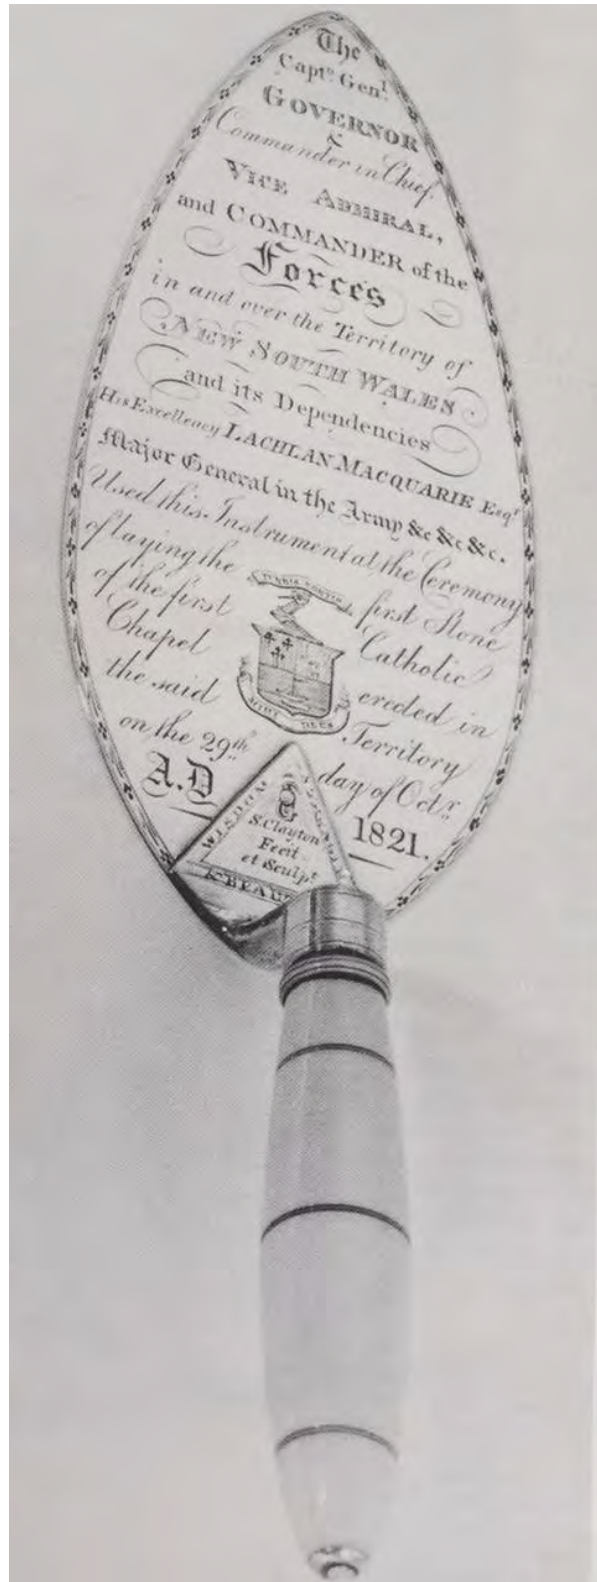 The
Capt.n Gen.l
GOVERNOR
&
Commander in Chief.
VICE ADMIRAL,
and COMMANDER of the
Forces
in and over the Territory of
NEW SOUTH WALES.
and its Dependencies
His Excellency LACHLAN MACQUARIE Esq.r
Major General in the Army &c &c &c.
Used this Instrument at the Ceremony
of laying the first Stone
of the first Catholic
Chapel erected in
the said Territory
on the 29th day of Oct.r
A.D 1821.
WISDOM
S. Clayton
Fecit
et Sculpt